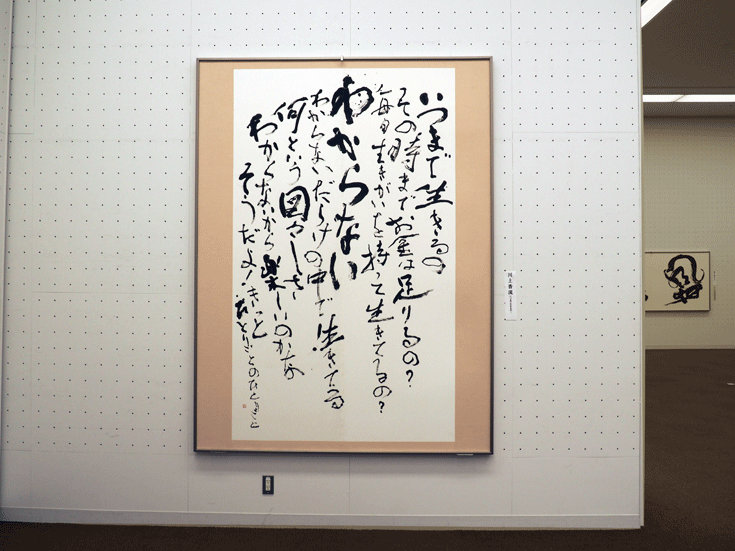 いつまで生きるの
その時までお金は足りるの?
毎日生きがいを持って生きてるの?
わからない
わからないだらけの中で生きてる
何という図々しさ
わからないから楽しいのかな
そうだよ!きっと
ひとりごとのひとりごと
川上香風